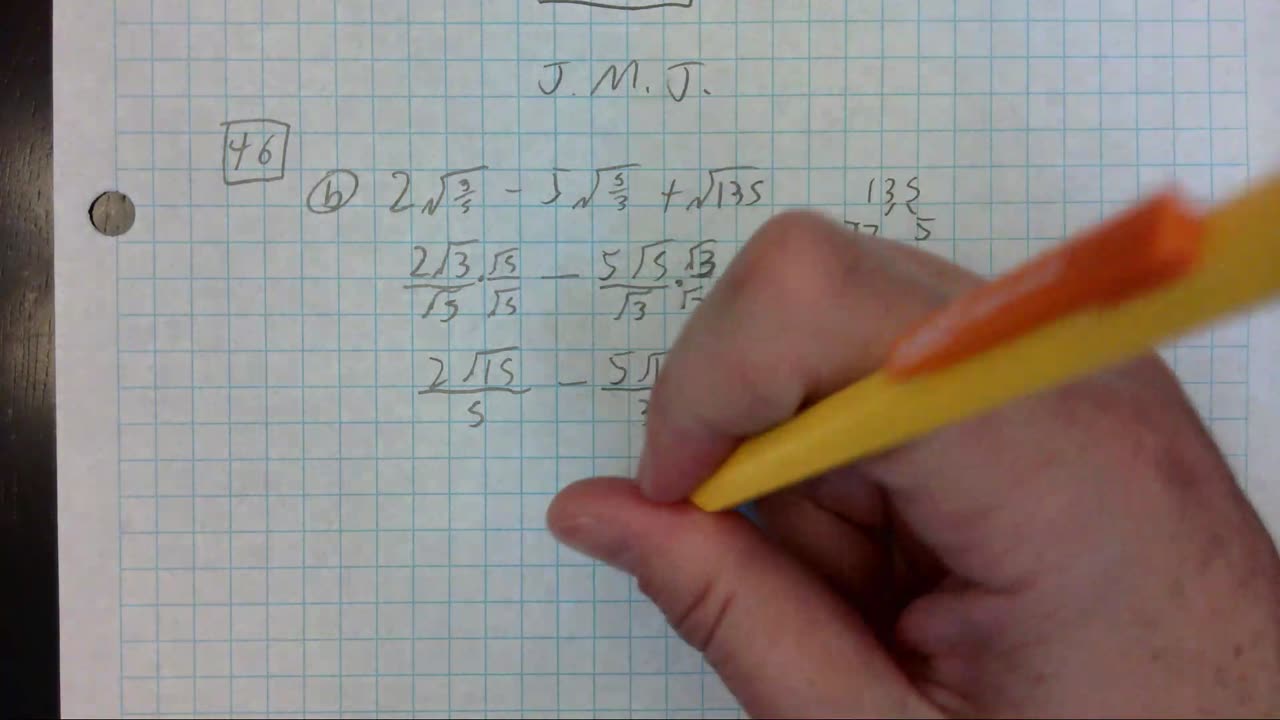 J. M. J.
46
b 2√(3/5) - 5√(5/3) + √135 135
5
2√3/√5 · √5/√5 — 5√5/√3 · √3
2√15/5 —